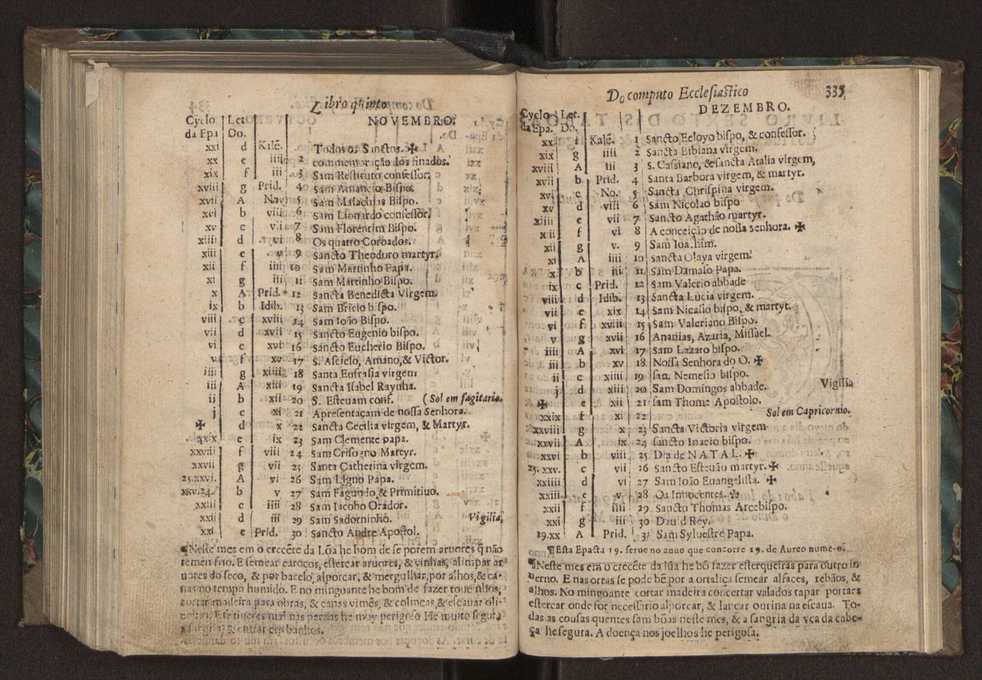 Libro quinto
NOVEMBRO.
Cyclo Let.
da Epa Do.
xxi d Kalē. Todos os Sanctos. ✠
xx e iiij 2 commemoração dos finados.
xix f iii 3 Sam Restituto confessor.
xviii g Prid. 4 Sam Amancio Bispo.
xvii A No. 5 Sam Malachias Bispo.
xvi b viii 6 Sam Lionardo confessor.
xv c v. 7 Sam Florencim Bispo.
xiiii d vi 8 Os quatro Coroados.
xiii e v 9 Sancto Theodoro martyr.
xii f iiii 10 Sam Martinho Papa.
xi g iii 11 Sam Martinho Bispo.
x A Prid. 12 Sancta Benedicta Virgem
ix b Idib. 13 Sam Bricio bispo.
viii c xviii 14 Sam Ioão Bispo.
vii d xvii 15 Sancto Eugenio bispo.
vi e xvi 16 Sancto Eucherio Bispo.
v f xv 17 S. Asciclo, Amano, & Victor.
iiii g xiiii 18 Santa Eufrasia virgem
iii A xiii 19 Sancta Isabel Raynha.
ii b xii 20 S. Esteuam conf. (Sol em sagitario.
j c xi 21 Apresentaçam de nossa Senhora.
✠ d x 22 Sancta Cecilia virgem, & Martyr.
xxix e ix 23 Sam Clemente papa.
xxviii f viii 24 Sam Crisogno Martyr.
xxvii g vii 25 Santa Catherina virgem.
25.xxvi. A vi 26 Sam Ligno Papa.
xxv.24. b v 27 Sam Fagundo & Primitiuo.
xxiii c iiii 28 Sam Iacobo Orador.
xxii d iii 29 Sam Sadorninho. Vigilia,
xxi e Prid. 30 Sancto Andre Apostol.
¶Neste mes em o crecēte da Lũa he bom de se porem aruores q não
remen frio. E semear caroços, estercar aruores, & vinhas, alimpar ar
uores do seco, & por bacelo, alporcar, & mergulhar, por alhos, & ca-
nas no tempo humido. E no mingoante he bom de fazer touçinhos,
cortar madeira para obras, & canas vimēs, & colmeas, & escauar oli-
he muy perigoso He muito segura
& entrar em banhos.
Do computo Ecclesiastico 335
DEZEMBRO.
Cyclo Let.
da Epa. Do.
xx f Kalē. 1 Sancto Eeloyo bispo, & confessor.
xix g iiii 2 Sancta Bibiana virgem.
xviii A iii 3 S. Cassiano, & sancta Atalia virgem,
xvii b Prid. 4 Santa Barbora virgem, & martyr.
xvi c No. 5 Sancta Chrispina virgem.
xv d viii 6 Sam Nicolao bispo
xiiii e vii 7 Sancto Agathão martyr.
xiii f vi 8 A conceição de nossa senhora. ✠
xii g v. 9 Sam Ioachim.
xi A iiii 10 sancta Olaya virgem.
x b iii 11 Sam Damaso Papa.
ix c Prid. 12 Sam Valerio abbade
viii d Idib. 13 Sancta Lucia virgem.
vii e xix 14 Sam Nicasio bispo, & martyr.
vi f xviii 15 Sam Valeriano Bispo.
v g xvii 16 Ananias, Azaria, Missael.
iiii A xvi 17 Sam Lazaro bispo.
iii b xv 18 Nossa Senhora do O. ✠
ii c xiiii 19 san. Nemesio bispo.
j d xiii 20 Sam Domingos abbade. Vigilia
✠ e xii 21 sam Thome Apostolo.
xxix f xi 22 Sol em Capricornio.
xxviii g x 23 Sancta Victoria virgem
xxvii A ix 24 sancto Inacio bispo.
xxvi b viii 25 Dia de NATAL. ✠
25.xxv. c vii 26 Sancto Esteuão martyr. ✠
xxiiii d vi 27 Sam Ioão Euangelista. ✠
xxiii e v 28 Os Innocentes. ✠
xxii f iiii 29 Sancto Thomas Arcebispo.
xxi g iii 30 Dauid Rey.
19.xx A Prid. 31 Sam Syluestre Papa.
¶Esta Epacta 19. serue no anno que concorre 19. de Aureo numero.
¶Neste mes em o crecēte da lũa he bō fazer esterqueiras para outro in
uerno. E nas ortas se pode bē por a ortaliça semear alfaces, rebãos, &
alhos. No mingoante cortar madeira concertar valados tapar portaes
estercar onde for necessario alporcar, & lançar ourina na escaua. To-
das as cousas quentes sam bõas neste mes, & a sangria da vea da cabe-
ça he segura. A doença nos joelhos he perigosa.